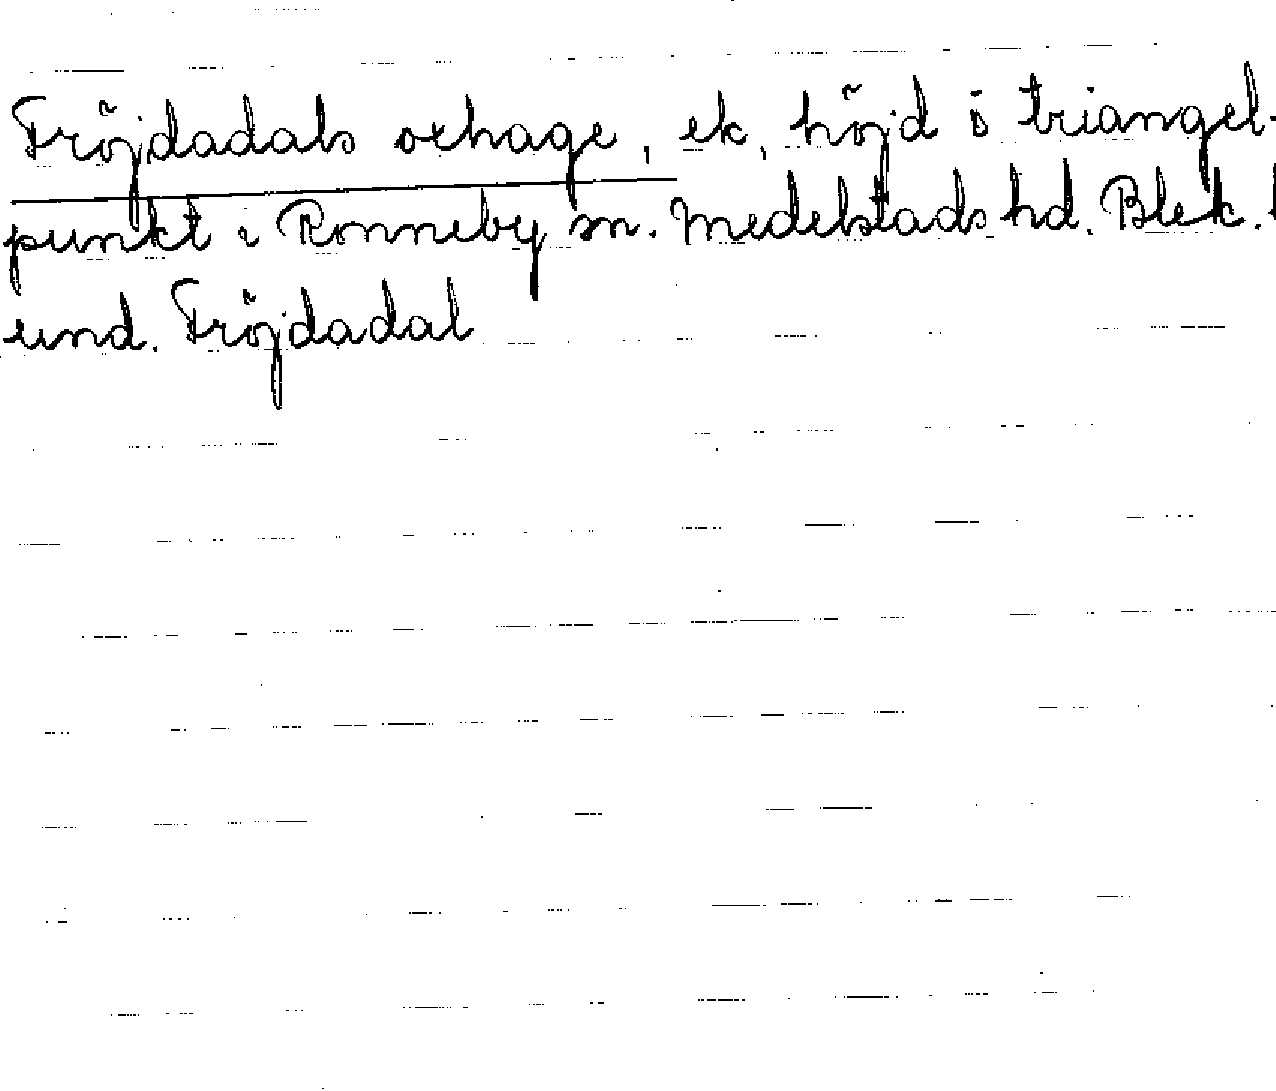 Fröjdadals oxhage, ek, höjd i triangel-
punkt i Ronneby sn. Medelstads hd. Blek. l.
und. Fröjdadal